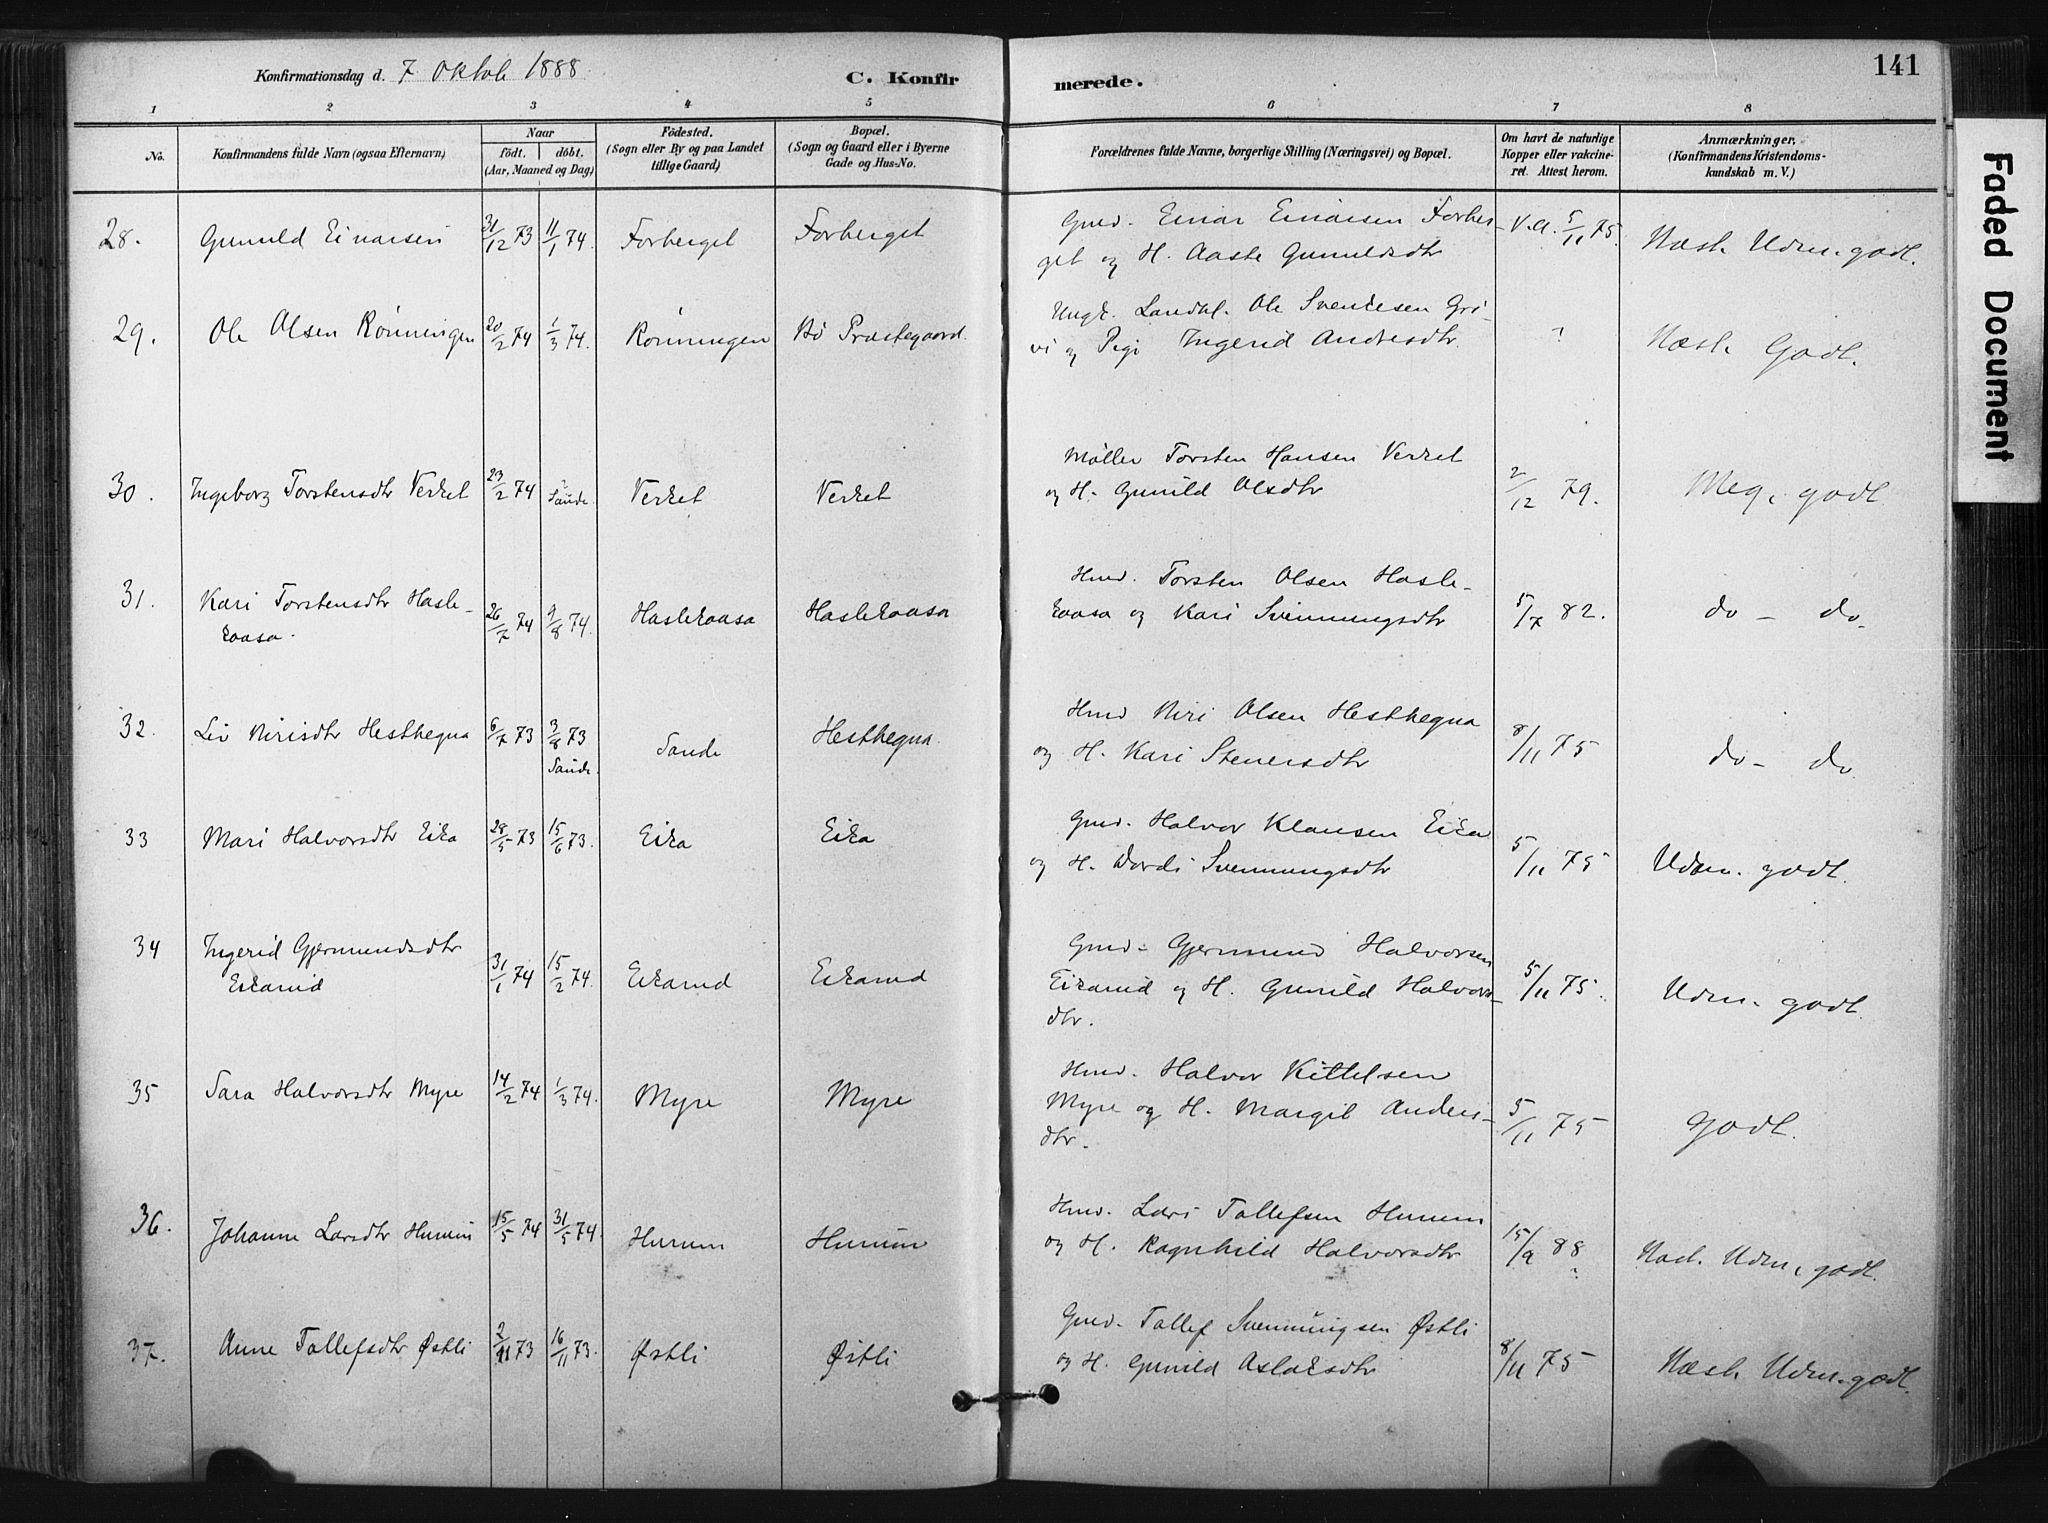 141
Konfirmationsdag d. 7 Oktob 1888.
C. Konfirmerede.
1 2 3 4 5 6 7 8
No. Konfirmandens fulde Navn (ogsaa Efternavn) Naar födt. döbt. (Aar, Maaned og Dag) Födested. (Sogn eller By og paa Landet tillige Gaard) Bopæl. (Sogn og Gaard eller i Byerne Gade og Hus-No. Forældrenes fulde Navne, borgerlige Stilling (Næringsvei) og Bopæl. Om havt de naturlige Kopper eller vakcineret. Attest herom. Anmærkninger. (Konfirmandens Kristendomskundskab m. V.)
28. Gunuld Einarsen 31/12 73 11/1 74. Forberget Forberget Gmd. Einar Einarsen Forber-
get og H. Aaste Gunuldsdtr V.A. 5/11 75. Næst. Udm. godt.
29. Ole Olsen Rönningen 20/2 74 1/3 74. Rönningen Bö Præstegaard. Ungk. Landal. Ole Svenkesen Gri-
vi og Pige Ingerid Andersdtr. ? Næst. Godt.
30. Ingeborg Torstensdtr Verket 23/2 74 ? Saude. Verket Verket Möller Torsten Hansen Verket
og H. Gunild Olsdtr 2/12 79. Meg. godt
31. Kari Torstensdtr Hasle-
kaasa. 26/7 74 9/8 74. Haslekaasa Haslekaasa Hmd. Torsten Olsen Hasle-
kaasa og Kari Svenningsdtr 5/7 82. do - do
32. Liv Nirisdtr Hesthegna 6/7 73 3/8 73 Saude. Saude Hesthegna. Hmd Niri Olsen Hesthegna
og H. Kari Stenersdtr 8/11 75 do - do
33 Mari Halvorsdtr Eika 28/5 73 15/6 73. Eika Eika Gmd. Halvor Klausen Eika
og H. Dordi Svenningsdtr 5/11 75 Udm. godt.
34 Ingerid Gjermundsdtr
Eikarud 31/1 74 15/2 74. Eikarud Eikarud Gmd. Gjermund Halvorsen
Eikarud og H. Gunild Halvors-
dtr. 5/11 75. Udm. godt.
35 Sara Halvorsdtr Myre 14/2 74 1/3 74. Myre Myre Hmd. Halvor Kittelsen
Myre og H. Margit Anders-
dtr. 5/11 75 Godt.
36. Johanne Larsdtr Hunum 15/5 74 31/5 74. Hunum Hunum Hmd. Lars Tollefsen Hunum
og H. Ragnhild Halvorsdtr 15/9 88 ? Næst. Udm. godt.
37. Anne Tollefsdtr Østli 2/11 73 16/11 73. Østli Østli Gmd. Tollef Svenningsen Østli
og H. Gunild Aslaksdtr 8/11 75 Næst. Udm. godt.
Faded Document